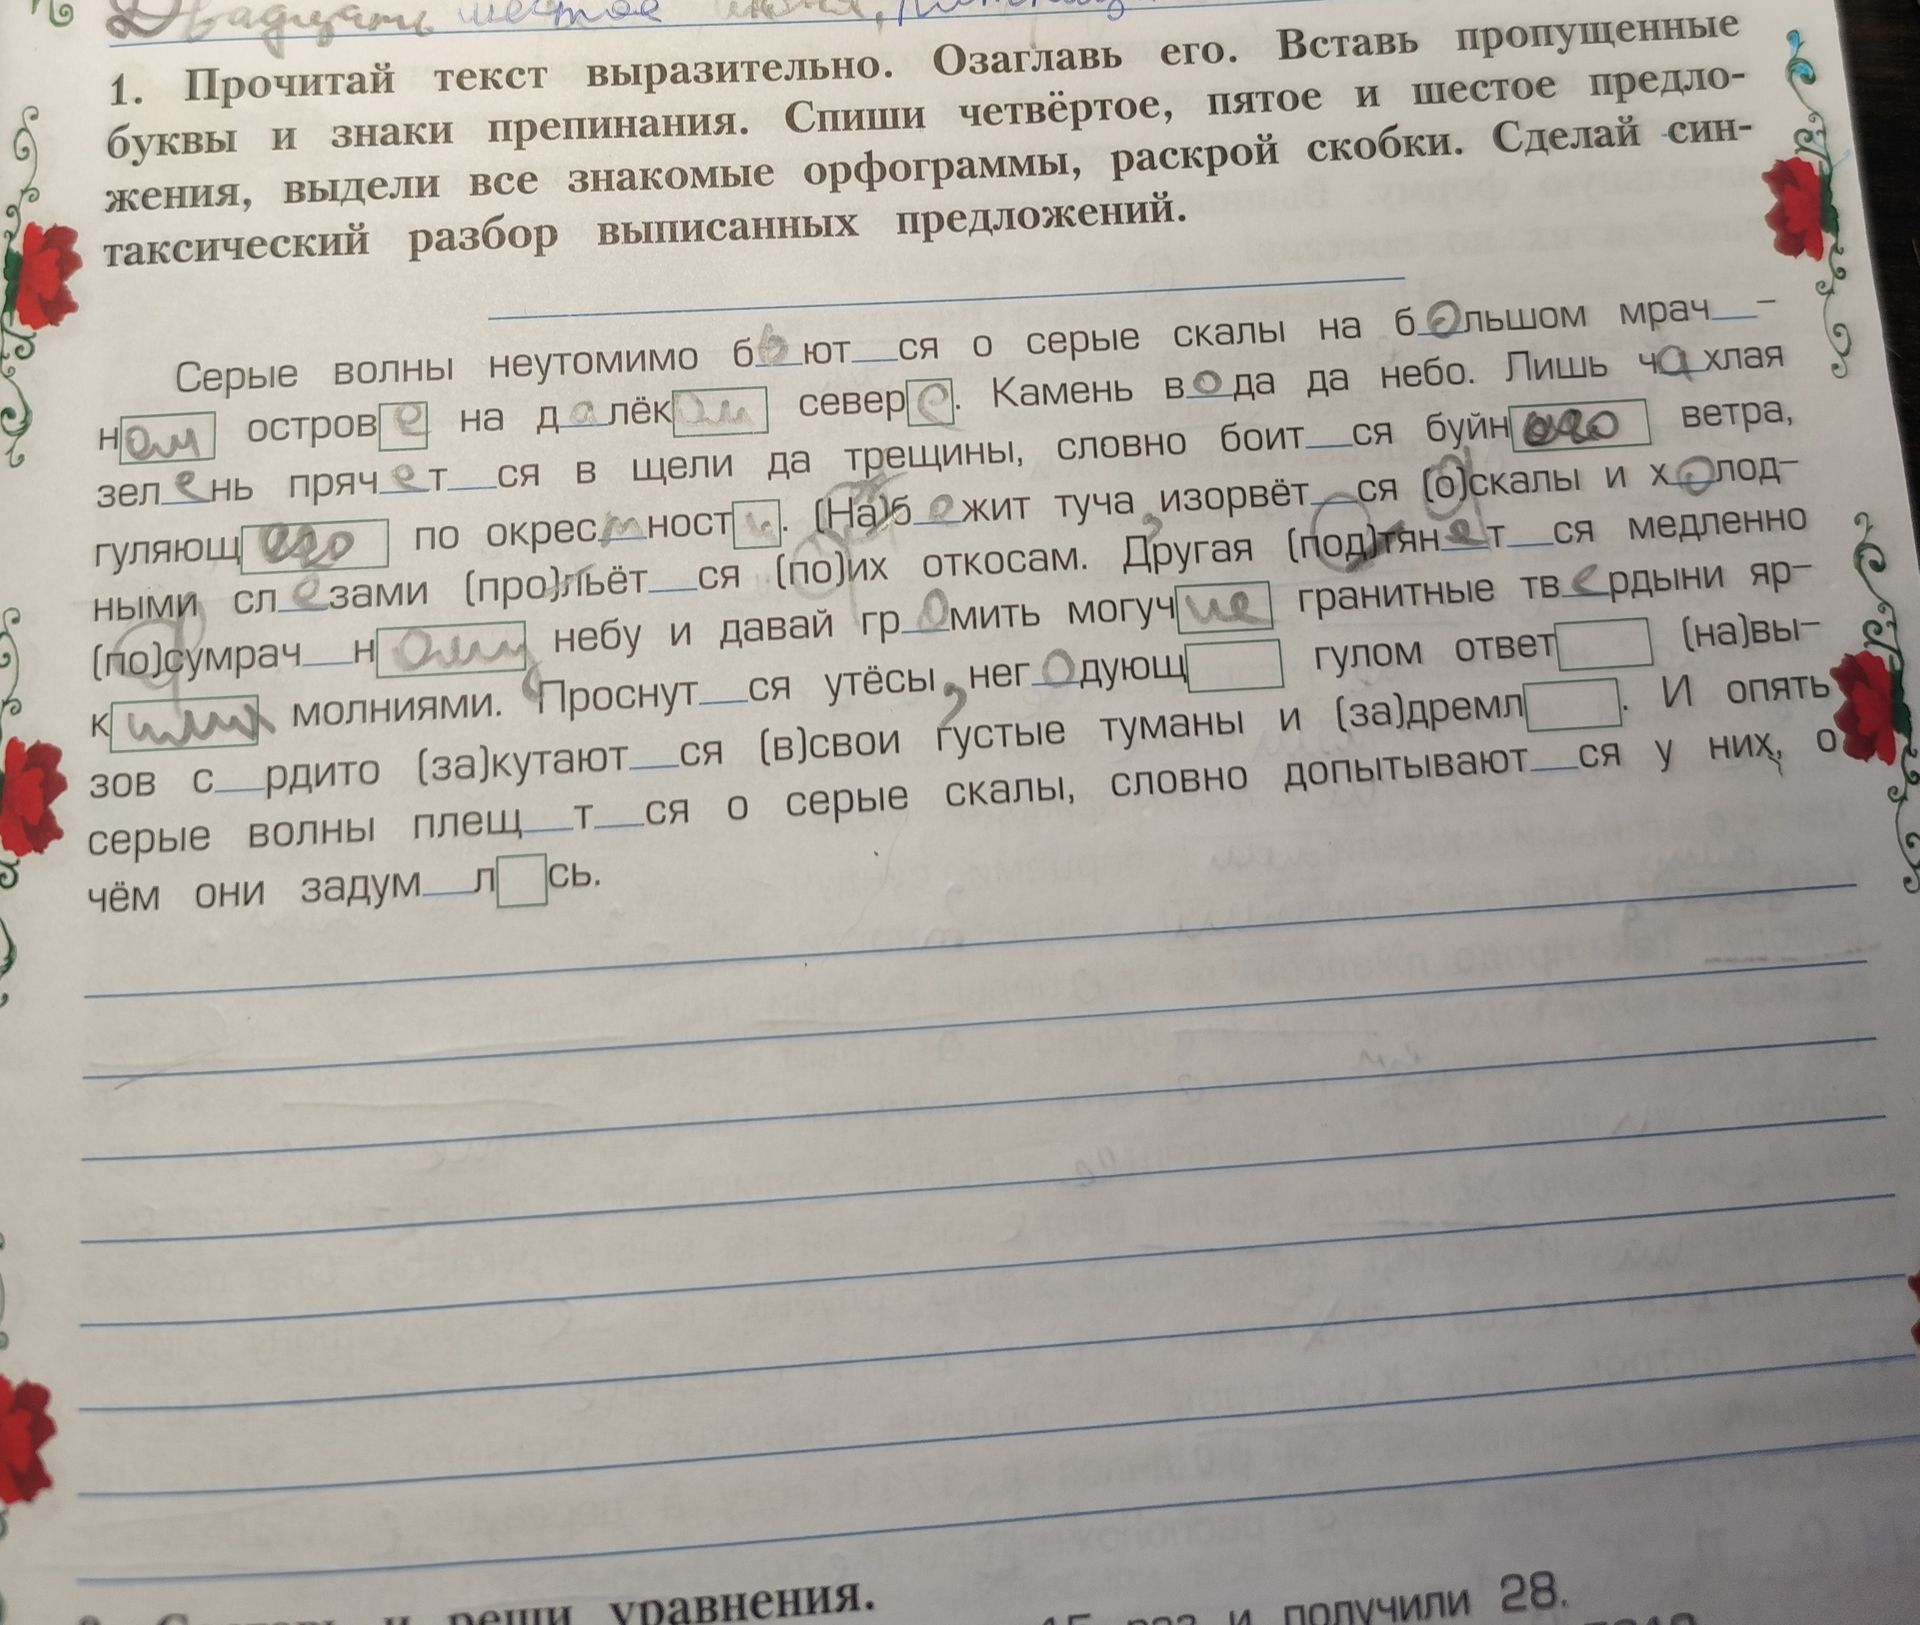 Двадцать шестое июня,
1. Прочитай текст выразительно. Озаглавь его. Вставь пропущенные
буквы и знаки препинания. Спиши четвёртое, пятое и шестое предло-
жения, выдели все знакомые орфограммы, раскрой скобки. Сделай син-
таксический разбор выписанных предложений.
Серые волны неутомимо бьют__ся о серые скалы на большом мрач__-
ном острове на далёком севере. Камень вода да небо. Лишь чахлая
зелень прячет__ся в щели да трещины, словно боит__ся буйного ветра,
гуляющего по окрестности. (На)бежит туча, изорвёт__ся (о)скалы и холод-
ными слезами (про)льёт__ся (по)их откосам. Другая (под)тянет__ся медленно
(по)сумрач__ному небу и давай громить могучие гранитные твердыни яр-
кими молниями. Проснут__ся утёсы, негодующ гулом ответ (на)вы-
зов с__рдито (за)кутают__ся (в)свои густые туманы и (за)дремл. И опять
серые волны плещ__т__ся о серые скалы, словно допытывают__ся у них, о
чём они задум__л сь.
и реши уравнения.
15 раз и получили 28.